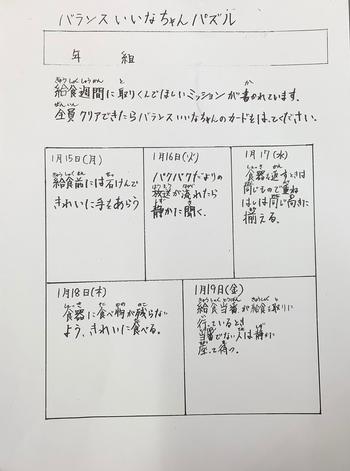 バランスいいなちゃんパズル
年 組
給食週間に取りくんでほしいミッションが書かれています。
全員クリアできたらバランスいいなちゃんのカードをはってください。
1月15日(月)
給食前には石けんで
きれいに手をあらう
1月16日(火)
パクパクだよりの
放送が流れたら
静かに聞く。
1月17(水)
食器を返すときは
同じもので重ね
はしは同じ向きに
揃える。
1月18日(木)
食器に食べ物が残らない
よう、きれいに食べる。
1月19日(金)
給食当番が給食を取りに
行っているとき
当番でない人は静かに
座って待つ。